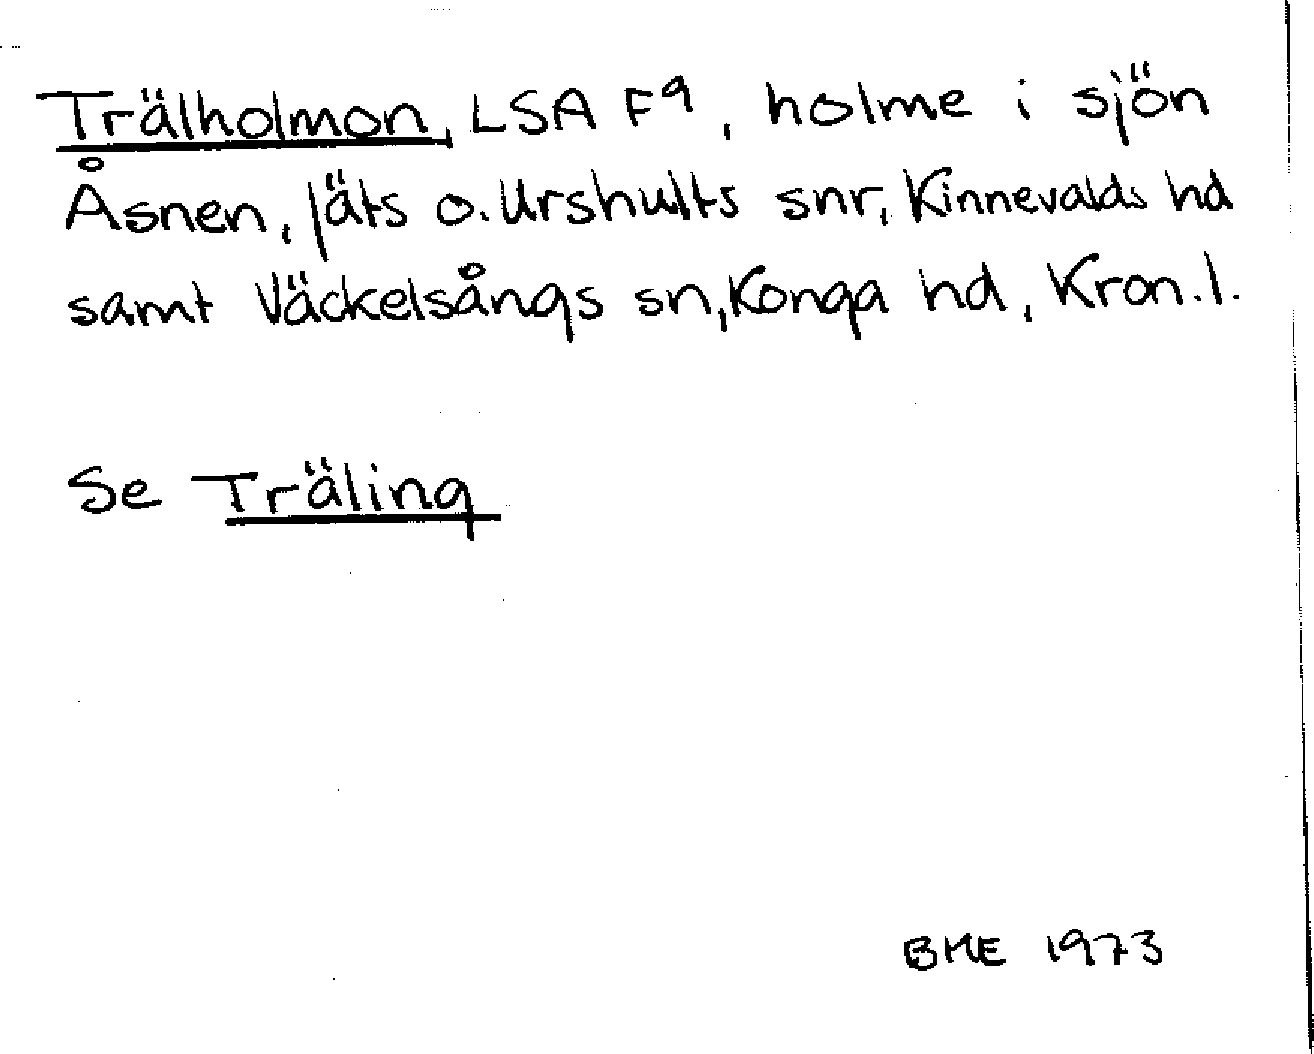 Trälholmon, LSA F9, holme i sjön
Åsnen, Jäts o. Urshults snr, Kinnevalds hd
samt Väckelsångs sn, Konga hd, Kron. l.
Se Träling
BME 1973